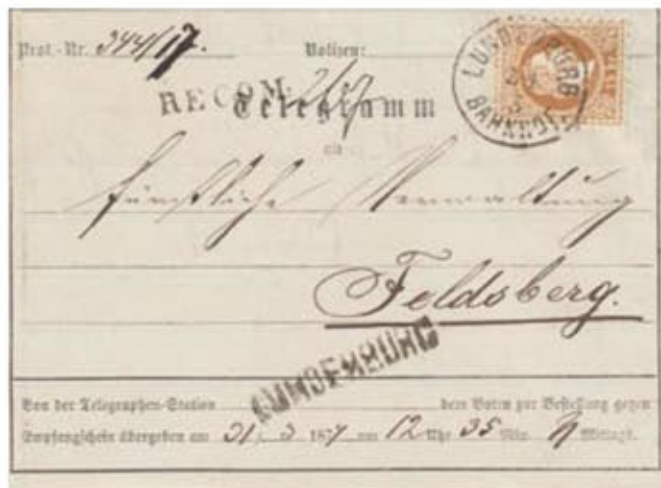 Prot.-Nr. 344/17. Notizen:
LUNDENBURG BAHNHOF
RECOM.
Telegramm
an
fürstliche Verwaltung
Feldsberg.
LUNDENBURG
Von der Telegraphen-Station dem Boten zur Bestellung gegen
Empfangschein übergeben am 31/3 187 um 12 Uhr 35 Min. Mittags.